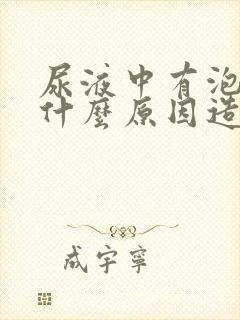 尿液中有泡
什麼原因造
成宇寧